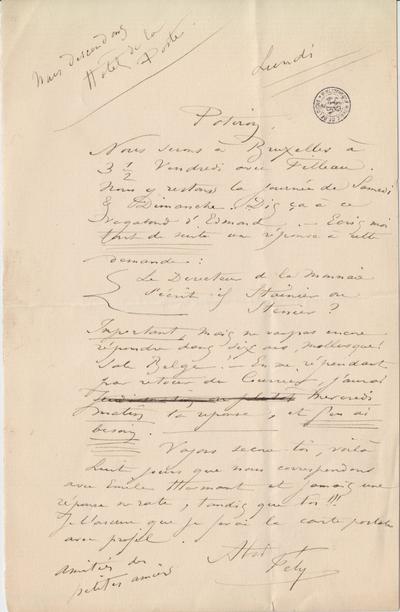 Nous descendons
Hotel de la
Poste.
Lundi
Potiron,
Nous serons à Bruxelles à
3 1/2 Vendredi avec Filleau.
Nous y restons la journée de Samedi
& Dimanche. Dis ça à ce
vagabond d'Edmond. — Ecris moi
tout de suite en réponse à cette
demande :
Le Directeur de la Monnaie
s'écrit-il Stainier ou
Stenier ?
Important, mais ne vas pas encore
répondre dans six ans, mollusque !
Sale Belge. — En me répondant
par retour du Courrier, j'aurai
mercredi
matin ta réponse, et j'en ai
besoin.
Voyons secoue toi, voilà
huit jours que nous correspondons
avec Emile et jamais une
réponse en rate, tandis que toi !!!
que je la carte postale
avec profil.
amitiés des
petites amies
Fély